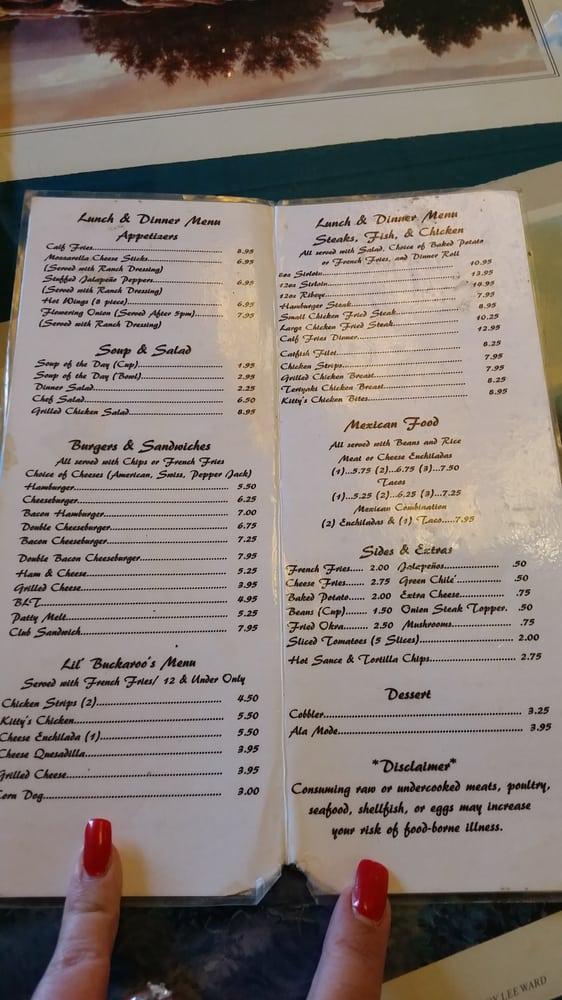 Lunch & Dinner Menu
Appetizers
Calf Fries 8.95
Mozzarella Cheese Sticks 6.95
(Served with Ranch Dressing)
Stuffed Jalapeño Peppers 6.95
(Served with Ranch Dressing)
Hot Wings (8 piece) 6.95
Flowering Onion (Served After 5pm) 7.95
(Served with Ranch Dressing)
Soup & Salad
Soup of the Day (Cup) 1.95
Soup of the Day (Bowl) 2.95
Dinner Salad 2.25
Chef Salad 6.50
Grilled Chicken Salad 8.95
Burgers & Sandwiches
All served with Chips or French Fries
Choice of Cheeses (American, Swiss, Pepper Jack)
Hamburger 5.50
Cheeseburger 6.25
Bacon Hamburger 7.00
Double Cheeseburger 6.75
Bacon Cheeseburger 7.25
Double Bacon Cheeseburger 7.95
Ham & Cheese 5.25
Grilled Cheese 3.95
BLT 4.95
Patty Melt 5.25
Club Sandwich 7.95
Lil' Buckaroo's Menu
Served with French Fries/ 12 & Under Only
Chicken Strips (2) 4.50
Kitty's Chicken 5.50
Cheese Enchilada (1) 5.50
Cheese Quesadilla 3.95
Grilled Cheese 3.95
Corn Dog 3.00
Lunch & Dinner Menu
Steaks, Fish, & Chicken
All served with Salad, Choice of Baked Potato
or French Fries, and Dinner Roll
Sirloin 10.95
12oz Sirloin 13.95
12oz Ribeye 14.95
Hamburger Steak 7.95
Small Chicken Fried Steak 8.95
Large Chicken Fried Steak 10.25
Calf Fries Dinner 12.95
Catfish Filet 8.25
Chicken Strips 7.95
Grilled Chicken Breast 7.95
Teriyaki Chicken Breast 8.25
Kitty's Chicken Bites 8.95
Mexican Food
All served with Beans and Rice
Meat or Cheese Enchiladas
(1)...5.75 (2)...6.75 (3)...7.50
Tacos
(1)...5.25 (2)...6.25 (3)...7.25
Mexican Combination
(2) Enchiladas & (1) Taco.....7.95
Sides & Extras
French Fries 2.00 Jalapeños .50
Cheese Fries 2.75 Green Chile' .50
Baked Potato 2.00 Extra Cheese .75
Beans (Cup) 1.50 Onion Steak Topper. .50
Fried Okra 2.50 Mushrooms .75
Sliced Tomatoes (5 Slices) 2.00
Hot Sauce & Tortilla Chips 2.75
Dessert
Cobbler 3.25
Ala Mode 3.95
*Disclaimer*
Consuming raw or undercooked meats, poultry,
seafood, shellfish, or eggs may increase
your risk of food-borne illness.
LEE WARD